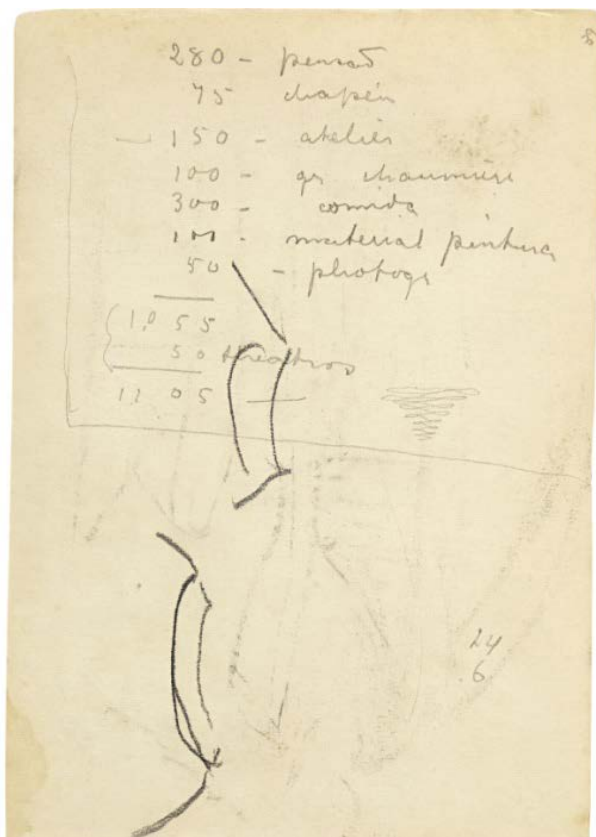 280 - pensaõ
75 chapéu
150 - atelier
100 - gr chaumière
300 - comida
100 - material pintura
50 - photogr
1,055
50 theatros
1105
24
6